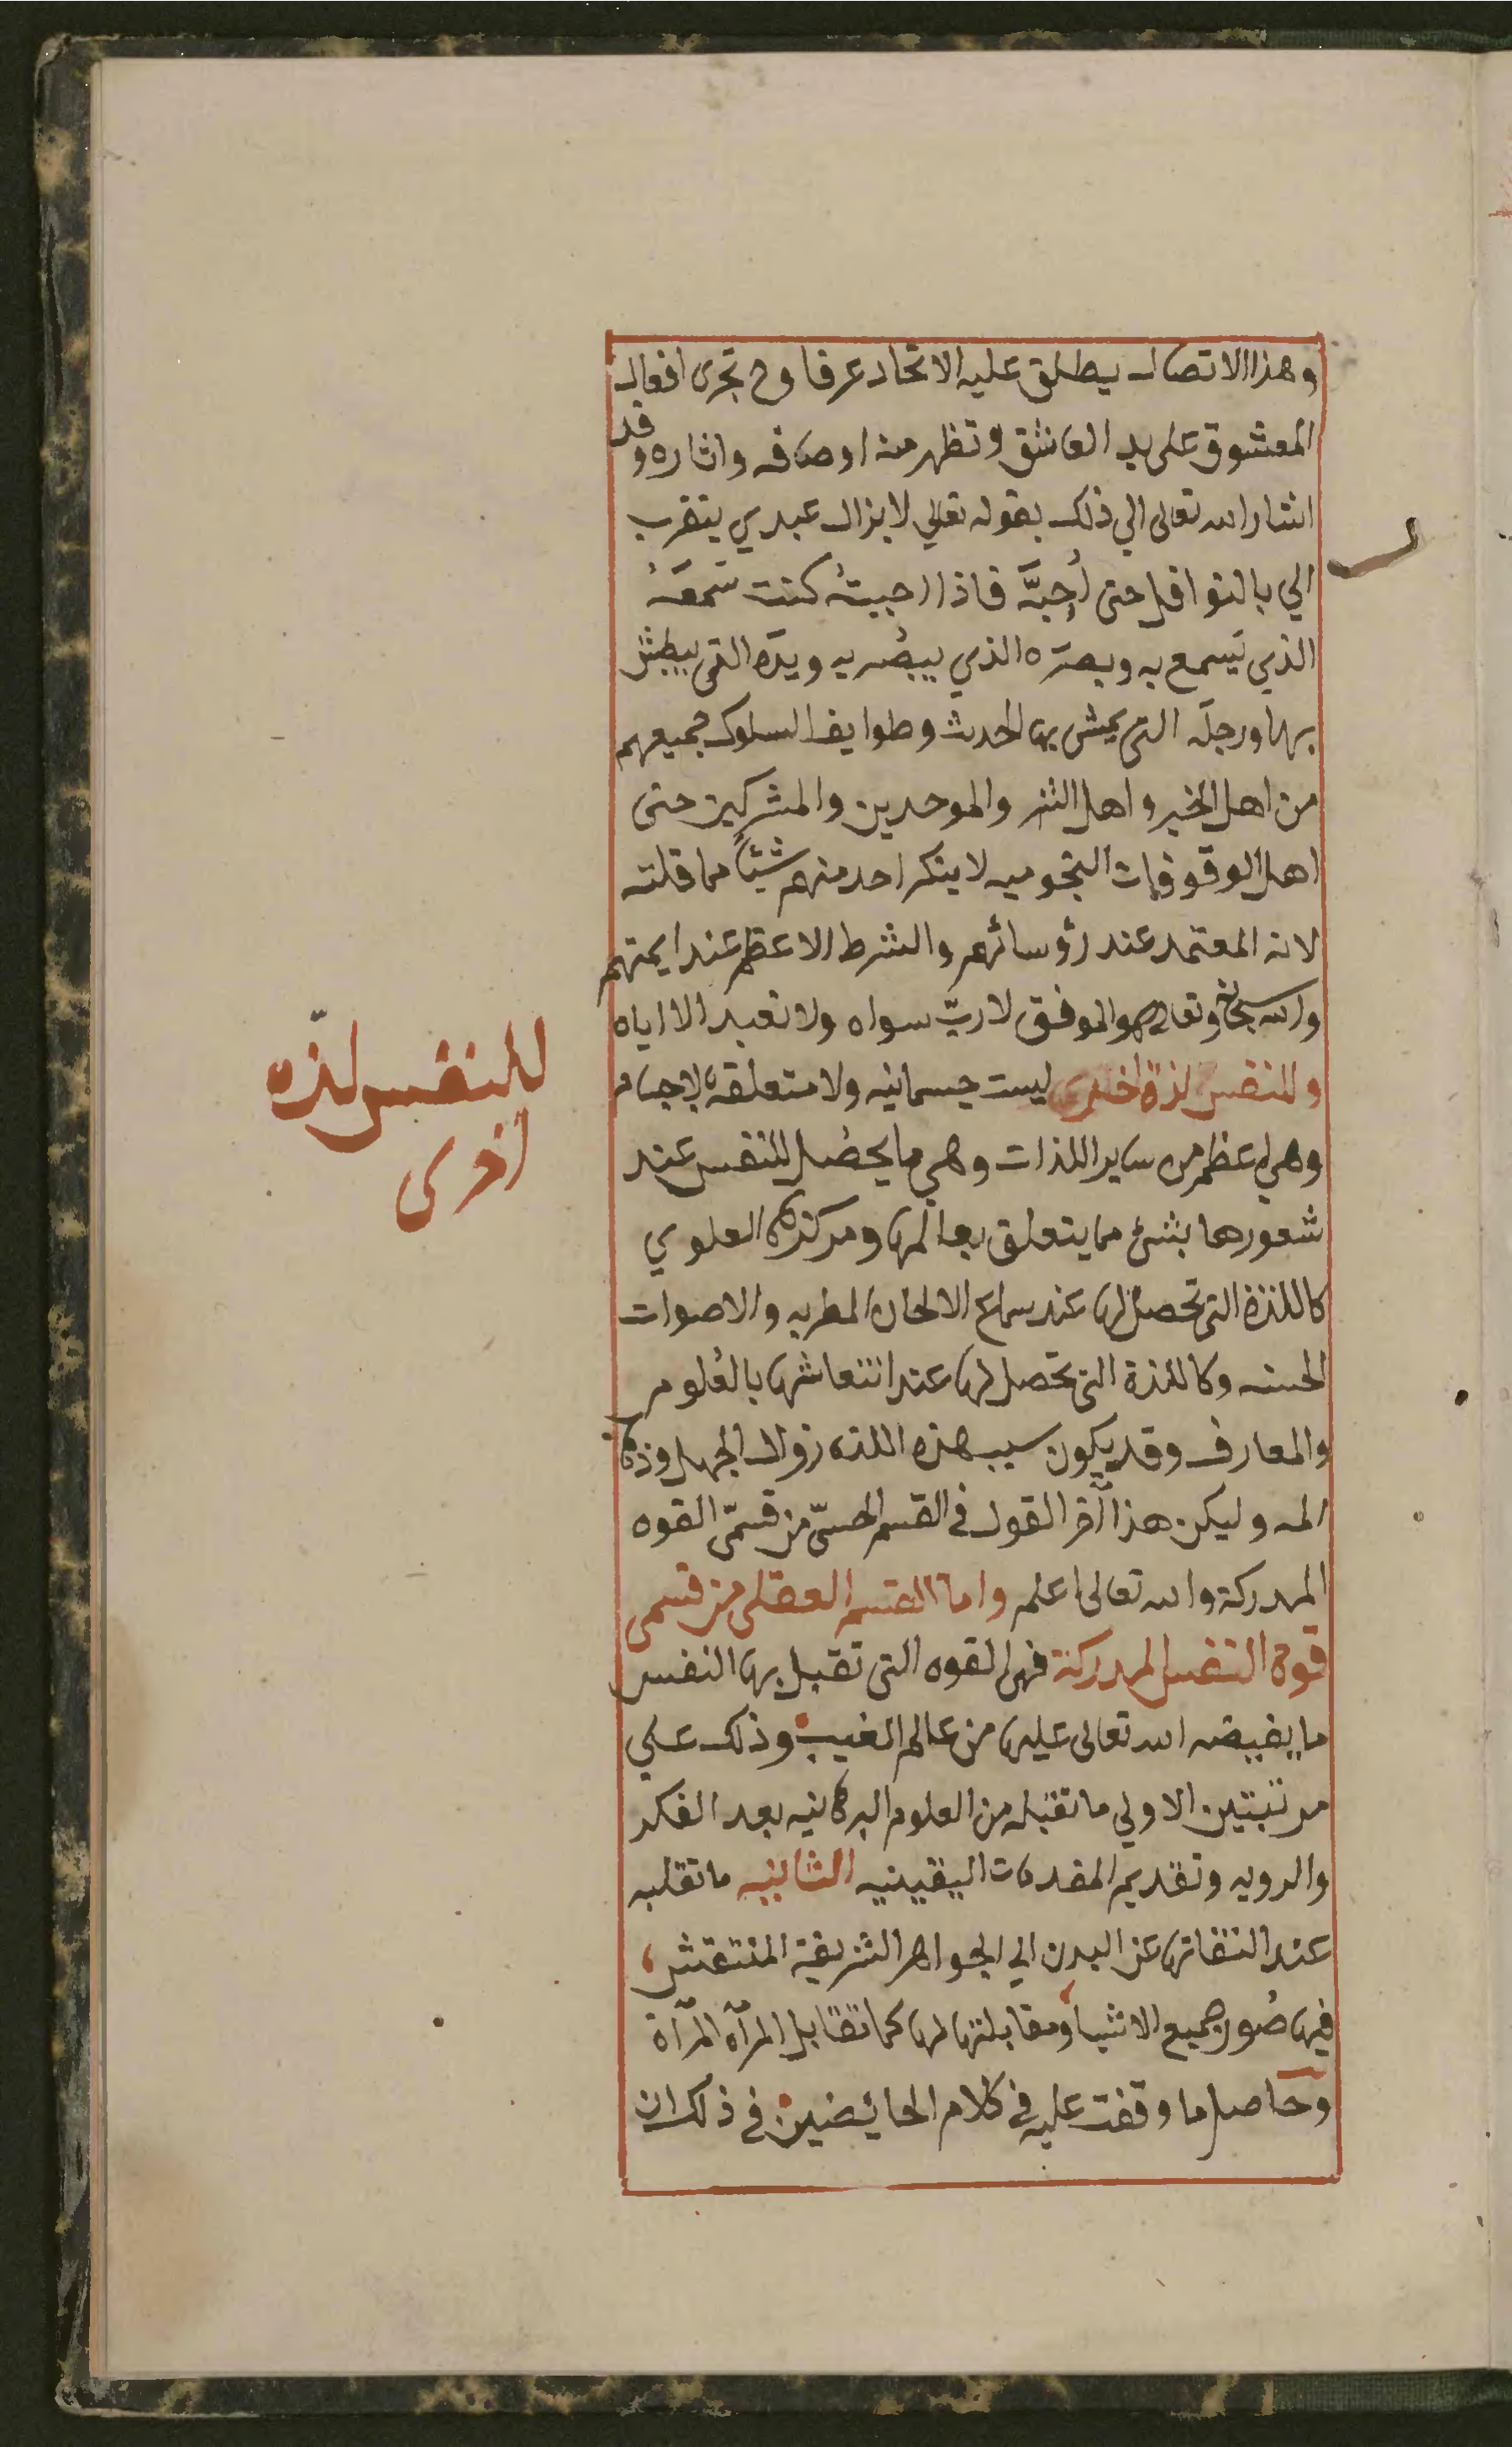 وهذا الاتصال يطلق عليه الاتحاد عرفا وح تجرى افعال
المعشوق على يد العاشق وتظهر منه اوصافه واثاره وقد
اشار الله تعالى الي ذلك بقوله تعالي لا يزال عبدي يتقرب
الي بالنوافل حتى أحِبَّه فاذا احببتهُ كنت سَمعَهُ
الذي يَسمع به وبصرَه الذي يبصُر به ويدَه التى يبطش
بها ورجلَه التى يمشى بها الحديث وطوايف السلوك جميعهم
من اهل الخير واهل الشر والموحدين والمشركين حتى
اهل الوقوفات النجوميه لا ينكر احد منهم شيئاً مما قلته
لانه المعتمد عند رؤسائهم والشرط الاعظم عند ايمتهم
والله سبحانه وتعالى هو الموفق لا ربّ سواه ولا نعبد الا اياه
وللنفس لذة اخرى ليست جسمانيه ولا متعلقه بالاجسام
وهي اعظم من ساير اللذات وهي ما يحصُل للنفس عند
شعورها بشئ مما يتعلق بعالمها ومركزها العلوي
كاللذة التى تحصل لها عند سماع الالحان المطربه والاصوات
الحسنه وكاللذة التى تحصل لها عند انتعاشها بالعُلوم
والمعارف وقد يكون سبب هذه اللذه زوال الجهل وذهاب
المه وليكن هذا آخر القول فى القسم الحسىّ من قسمَى القوه
المدركة والله تعالى اعلم واما القسم العقلى من قسمى
قوة النفس المدركة فهى القوه التى تقبل بها النفس
ما يفيضه الله تعالى عليها من عالم الغيب وذلك علي
مرتبتين الاولي ما تقبله من العلوم البرهانيه بعد الفكر
والرويه وتقديم المقدمات اليقينيه الثانيه ما تقلبه
عند التفاتها عن البدن الي الجواهر الشريفة المنتقش
فيها صُور جميع الاشيا ومقابلتها لها كما تقابل المرآه المرآة
وحاصل ما وقفت عليه في كلام الخائضين في ذلك ان
للنفس لذّه
اخرى